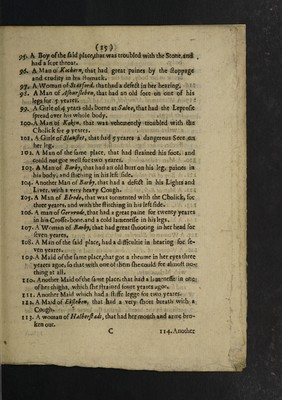 (25)
95. A Boy of the said place, that was troubled with the Stone, and
had a sore throat.
96. A Man of Kochern, that had great paines by the stoppage
and crudity in his stomack.
97. A Woman of Stasford, that had a defect in her hearing.
98. A Man of Ashersleben, that had an old sore on one of his
legs for 9 yeares.
99. A Girle of 4 years old borne at Salea, that had the Leprosie
spread over his whole body.
100. A Man of that was vehemently troubled with the
Cholick for 9 yeares.
101. A Girle of that had 9 yeares a dangerous Sore on
her leg.
102. A Man of the same place, that had strained his foot, and
could not goe well for two yeares.
103. A Man of Barby, that had an old hurt on his leg, paines in
his body, and stitching in his left side.
104. Another Man of Barby, that had a defect in his Lights and
Liver, with a very heavy Cough.
105. A Man of that was tormented with the Cholick, for
three yeares, and with the stitching in his left side.
106. A man of Gernrode, that had a great paine for twenty yeares
in his Crosse-bone and a cold lamenesse in his legs.
107. A Woman of Barby, that had great shooting in her head for
seven yeares.
108. A Man of the said place, had a difficultie in hearing for se-
ven yeares.
109. A Maid of the same place, that got a rheume in her eyes three
yeares agoe, so that with one of them she could see almost no-
thing at all.
110. Another Maid of the same place, that had a lamenesse in one
of her thighs, which she strained foure yeares agoe.
111. Another Maid which had a stiffe legge for two yeares.
112. A Maid of that had a very short breath with a
Cough.
113. A woman of Halberstads, that had her mouth and arme bro-
ken out.
C
114. Another